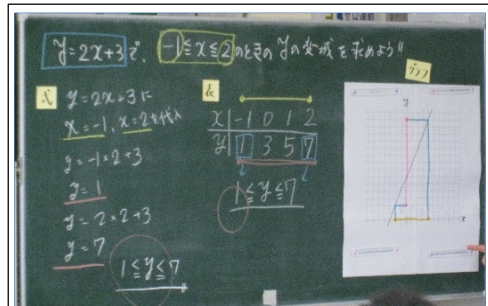 y=2x+3で、 -1≦x≦2のときのyの変域を求めよう!!
式
y=2x+3に
x=-1, x=2を代入
y=-1×2+3
y=1
y=2×2+3
y=7
1≦y≦7
表
x -1 0 1 2
y 1 3 5 7
1≦y≦7
グラフ
y
x